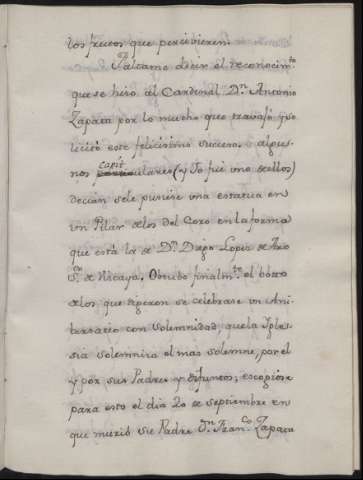 los frutos que percibieren.
Faltame decir el reconocim.to
que se hizo al Cardenal D.n Antonio
Zapata por lo mucho que travajó y so
licitó este felicissimo sucesso. algu-
nos capitulares (y Yo fui uno de ellos)
decian se le pusiese una estatua en
un Pilar de los del Coro en la forma
que està la de D.n Diego Lopez de Aro
S.or de Vizcaya. Obtubo finalm.te el boto
de los que digeron se celebrase un Ani-
bersario con solemnidad, que la Igle-
sia solemniza el mas solemne, por el
y por sus Padres y difuntos; escogiose
para esto el dia 20 de septiembre en
que murió su Padre D.n Fran.co Zapata